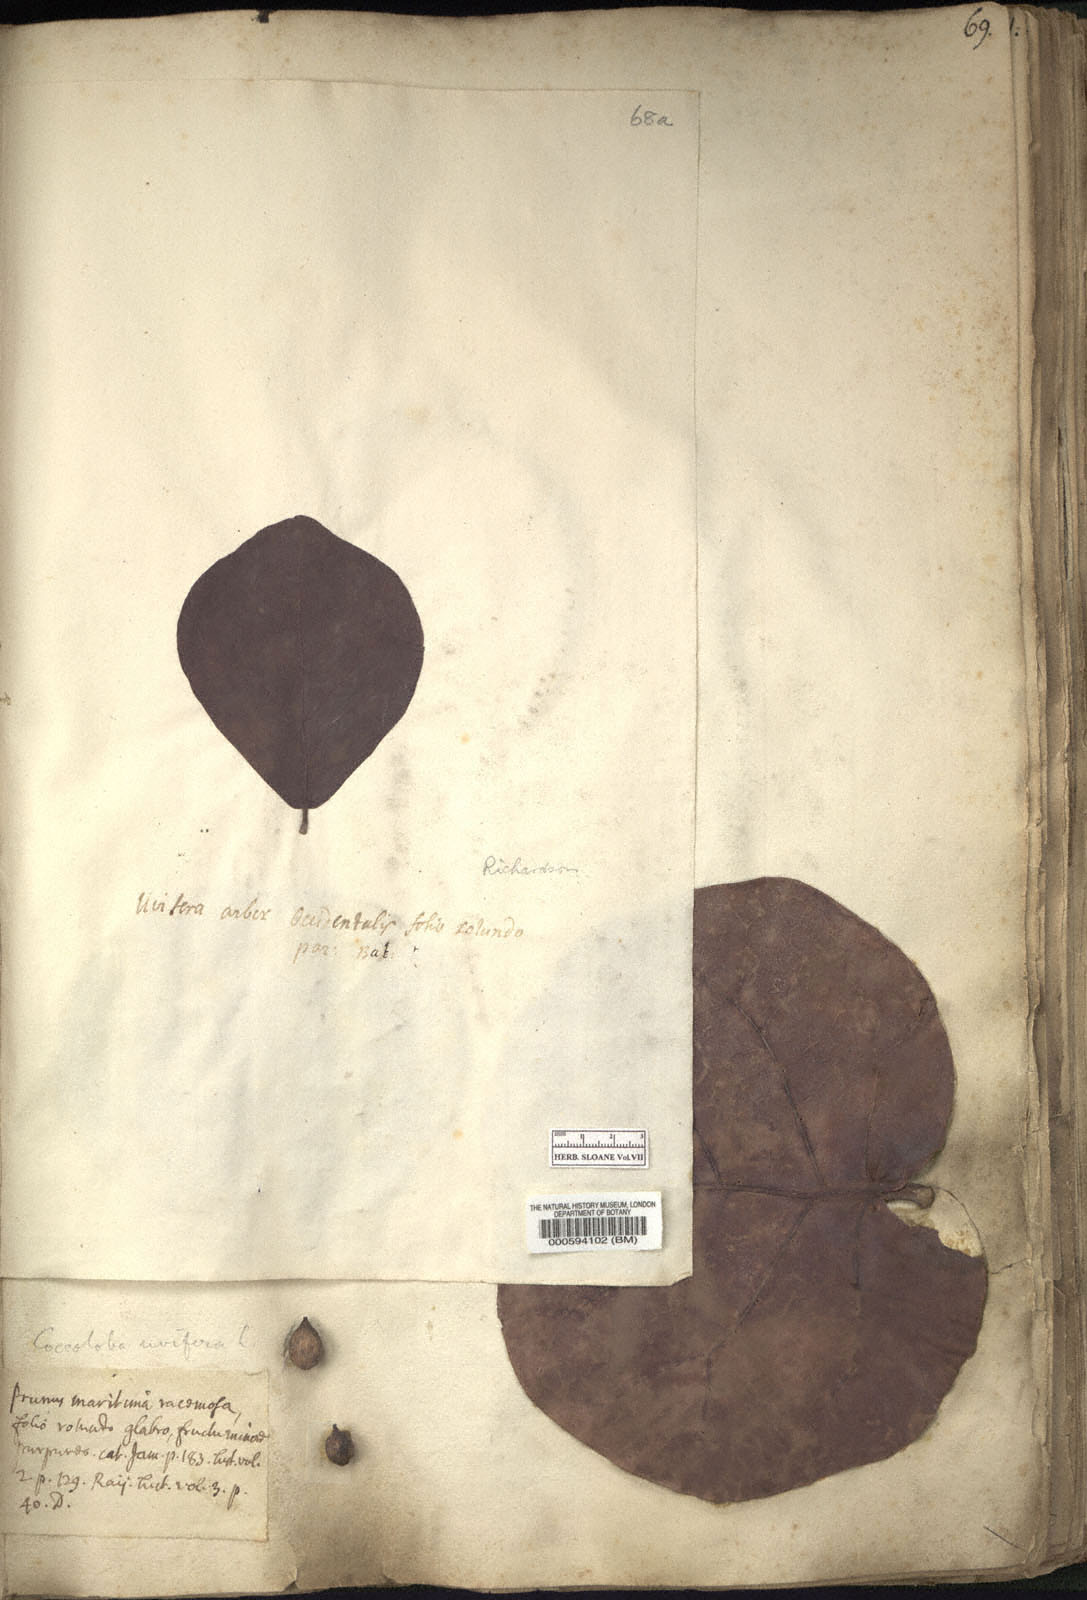 69. 1.
68a
Richardson
Uvifera arbor Occidentalis folio rotundo
par: Bat:
HERB. SLOANE Vol.VII
THE NATURAL HISTORY MUSEUM, LONDON
DEPARTMENT OF BOTANY
000594102 (BM)
Coccoloba uvifera L.
Prunus maritima racemosa,
folio rotundo glabro, fructu minore
purpureo. cat. Jam. p. 183. hist. vol.
2. p. 129. Raij. hist. vol. 3. p.
40. D.